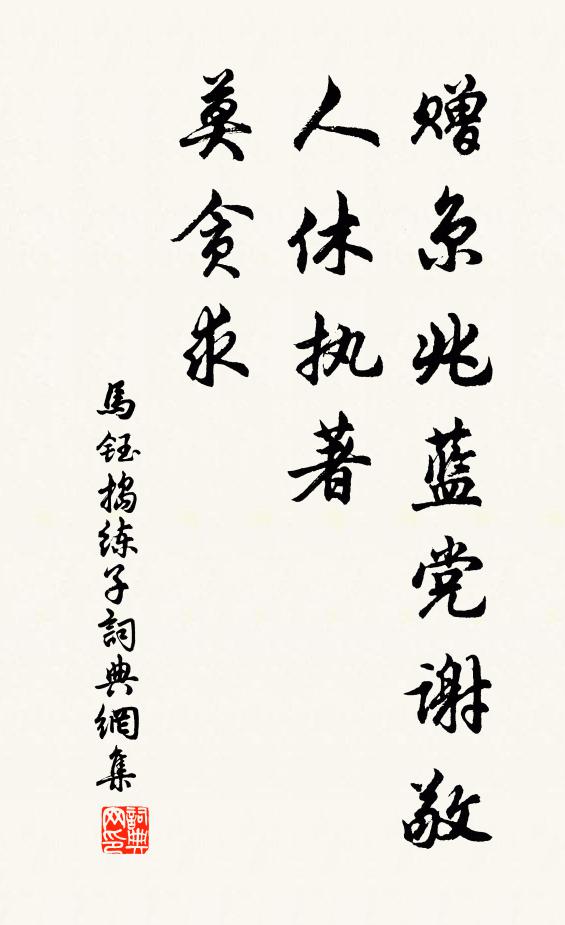 赠京兆蓝党谢敬
人休执著
莫贪求
馬鈺搗练子詞典網集
詞典网印